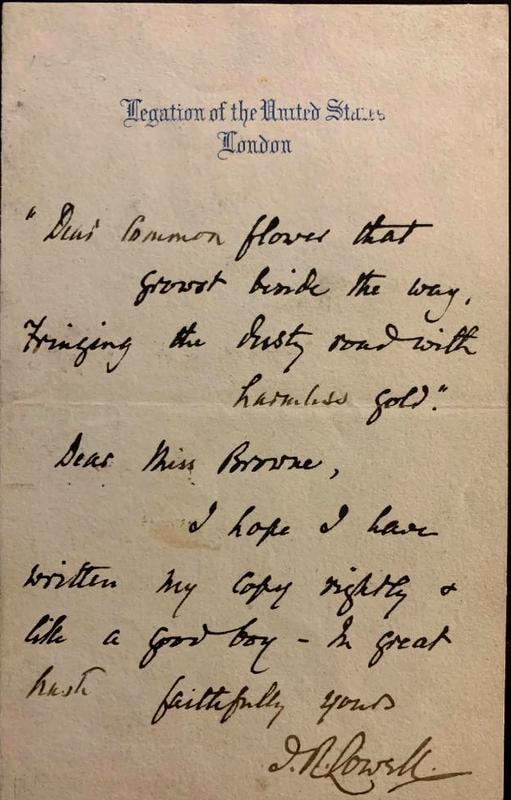 Legation of the United States
London
"Dear common flower that
growst beside the way,
Fringing the dusty road with
harmless gold."
Dear Miss Browne,
I hope I have
written my copy rightly &
like a good boy – In great
haste faithfully yours
J. R. Lowell.